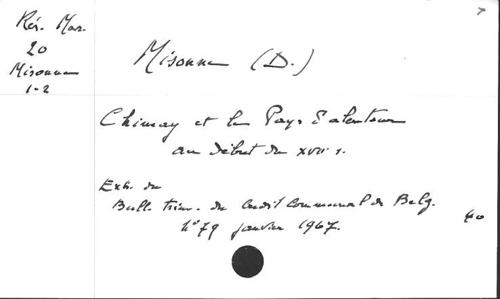 Rés. Mar.
20
Misonne
1-2
Misonne (D.)
Chimay et le Pays d'alentour
au début du XVII s.
Extr. du
Bull. trim. du Crédit Communal de Belg.
N° 79 janvier 1967.